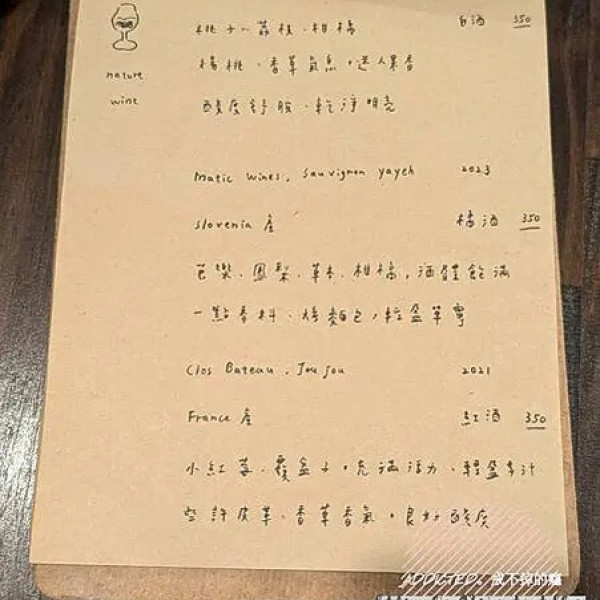 桃子、荔枝、柑橘 白酒 350
nature
楊桃、香草氣息,迷人果香
wine
酸度舒服、乾淨明亮
Matic Wines, Sauvignon yayeh 2023
Slovenia 產 橘酒 350
芭樂、鳳梨、草本、柑橘,酒體飽滿
一點香料、烤麵包,輕盈單寧
Clos Bateau, Jou Jou 2021
France 產 紅酒 350
小紅莓、覆盆子,充滿活力、輕盈多汁
些許皮革、香草香氣,良好酸度
ADDICTED. 戒不掉的癮